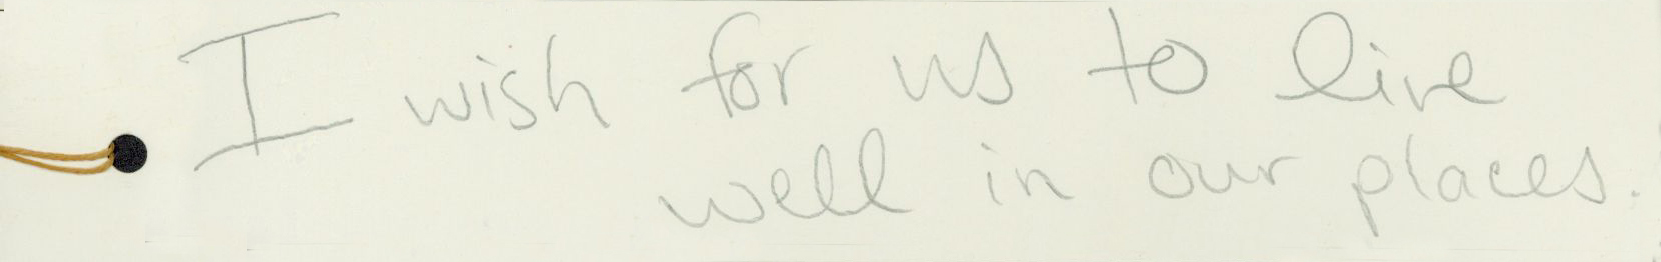 I wish for us to live
well in our places.